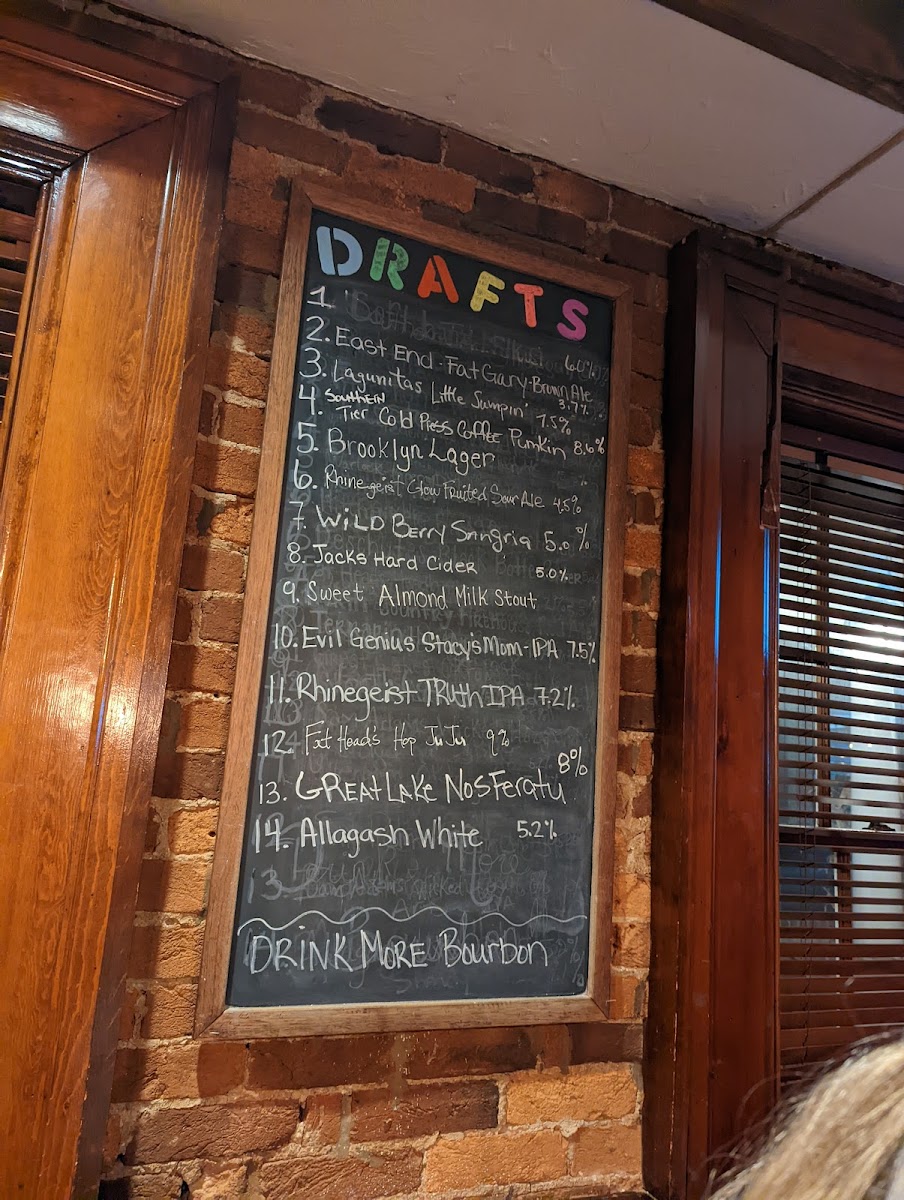 DRAFTS
1
2. East End-Fat Gary-Brown Ale 3.7%
3. Lagunitas Little Sumpin' 7.5%
4. Southern Tier Cold Press Coffee Pumkin 8.6%
5. Brooklyn Lager
6. Rhinegeist Glow Fruited Sour Ale 4.5%
7. WiLD Berry Sangria 5.0%
8. Jacks Hard Cider 5.0%
9. Sweet Almond Milk Stout
10. Evil Genius Stacy's Mom-IPA 7.5%
11. Rhinegeist TRUth IPA 7.2%
12. Fat Head's Hop JuJu 9%
13. GREAt LAKe NosFeratu 8%
14. Allagash White 5.2%
DRiNK MORE Bourbon